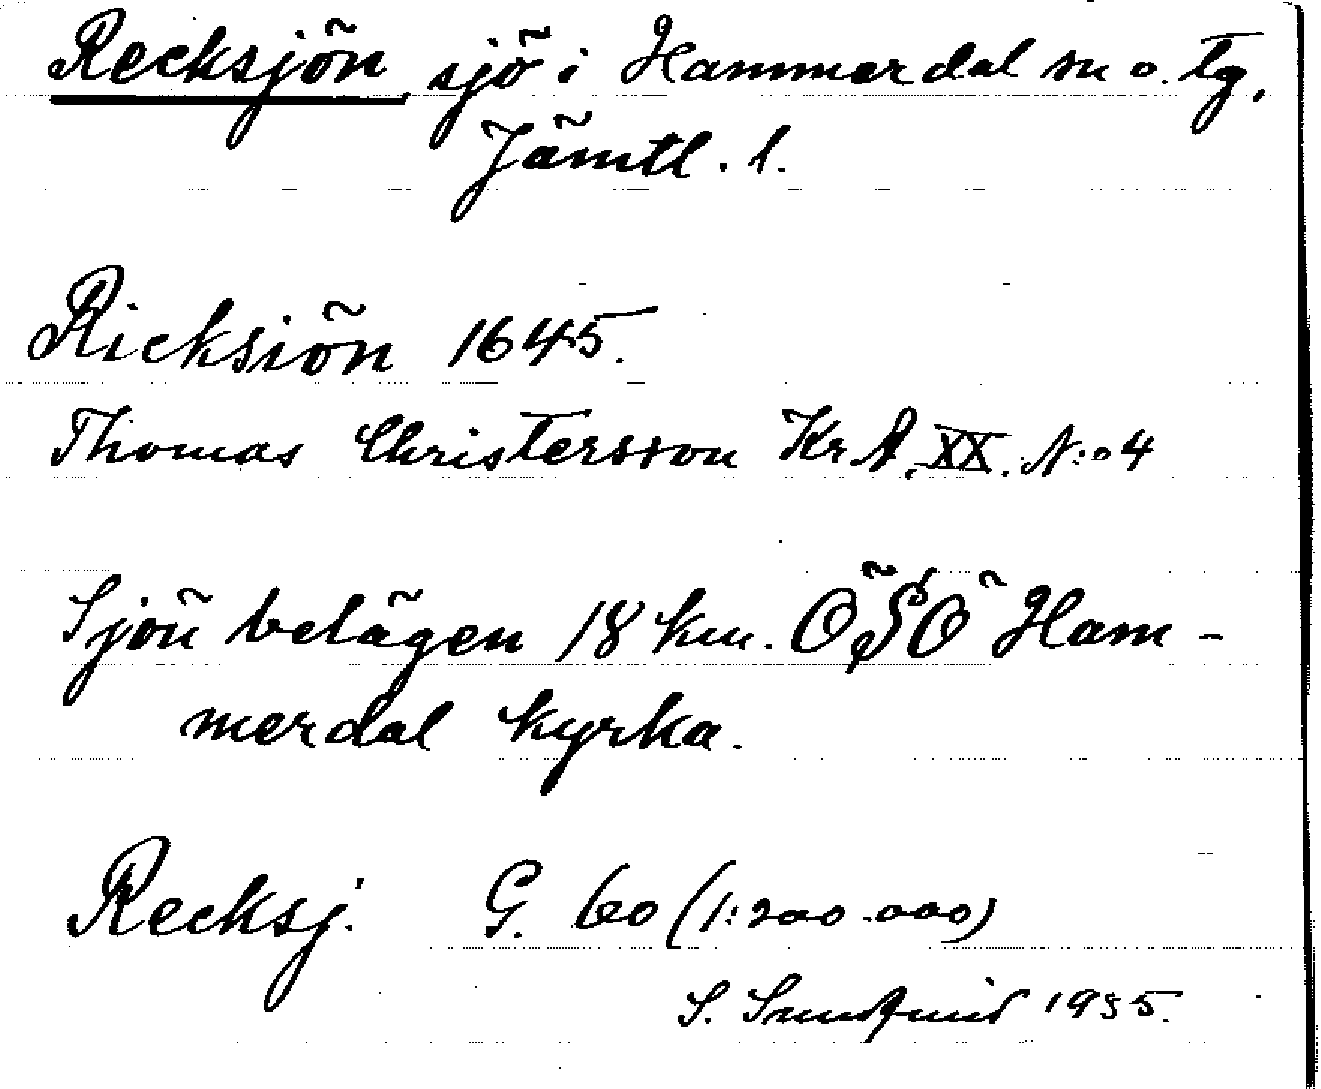 Recksjön, sjö i Hammerdal sn o. tg,
Jämtl. l.
Ricksiön 1645.
Thomas Christersson KrA, XX. N:o 4
Sjön belägen 18 km. ÖSÖ Ham-
merdal kyrka.
Recksj. G. 60 (1:200.000)
S. 1935.